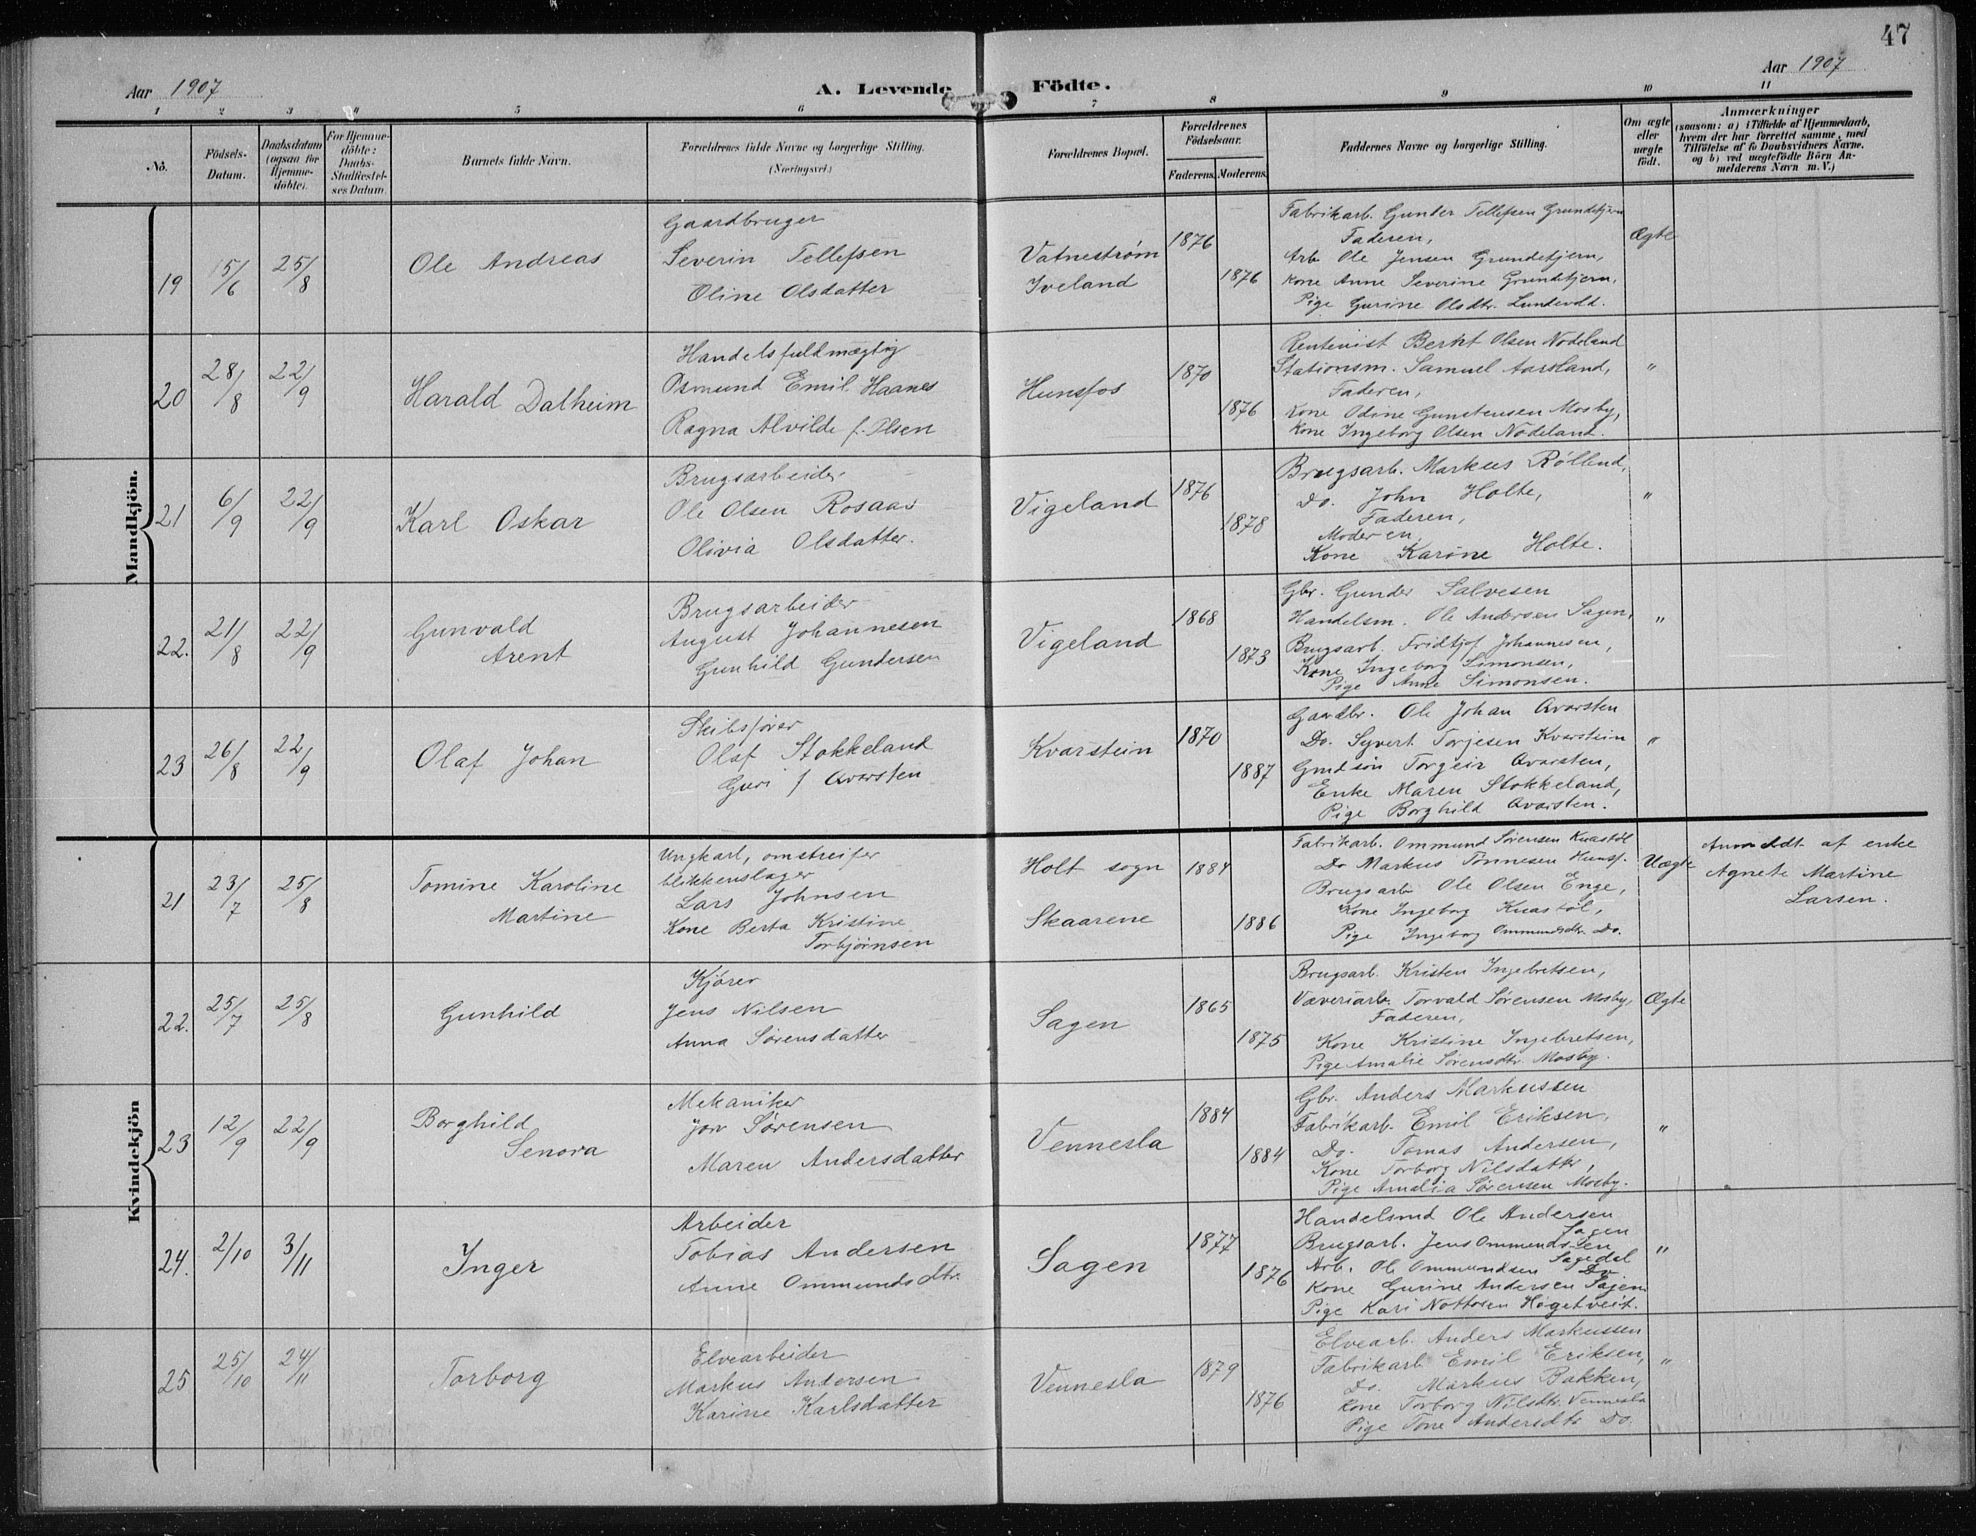 47
Aar 1907
A. Levende Födte.
Aar 1907
1 2 3 4 5 6 7 8 9 10 11
No.
Födsels-Datum.
Daabsdatum (ogsaa for Hjemme-döbte).
For Hjemme-döbte: Daabs-Stadfæstel-ses Datum.
Barnets fulde Navn.
Forældrenes fulde Navne og borgerlige Stilling.
(Næringsvei.)
Forældrenes Bopæl.
Forældrenes Födselsaar.
Faderens. Moderens.
Faddernes Navne og borgerlige Stilling.
Om ægte eller uægte födt.
Anmærkninger
(saasom: a) i Tilfælde af Hjemmedaab, hvem der har forrettet samme, med Tilföielse af to Daabsvidners Navne. og b) ved uægtefödte Börn Anmelderens Navn m. V.)
Mandkjön.
19 15/6 25/8 Ole Andreas
Gaardbruger
Severin Tellefsen
Oline Olsdatter
Vatnestrøm
Iveland
1876
1876
Fabrikarb. Gunder Tellefsen Grundetjern
Faderen,
Arb. Ole Jensen Grundetjern,
Kone Anne Severine Grundetjern,
Pige Gurine Olsdtr. Lundevold.
Ægte
20 28/8 22/9 Harald Dalheim
Handelsfuldmægtig
Osmund Emil Haanes
Ragna Alvilde f. Olsen
Hunsfos
1870
1876
Rentenist Berht Olsen Nodeland
Stationsm. Samuel Aarsland,
Faderen,
Kone Odine Gunstensen Mosby,
Kone Ingeborg Olsen Nodeland.
"
21 6/9 22/9 Karl Oskar
Brugsarbeider
Ole Olsen Rosaas
Olivia Olsdatter.
Vigeland
1876
1878
Brugsarb. Markus Rølland,
Do. John Holte,
Faderen,
Moderen,
Kone Karine Holte.
"
22. 21/8 22/9 Gunvald
Arent
Brugsarbeider
August Johannesen
Gunhild Gundersen
Vigeland
1868
1873
Gbr. Gunder Salvesen
Handelsm. Ole Andersen Sagen,
Brugsarb. Fridtjof Johannesen,
Kone Ingeborg Simonsen,
Pige Anne Simonsen.
"
23 26/8 22/9 Olaf Johan
Skibsfører
Olaf Stokkeland
Guri f Avarsten
Kvarstein
1870
1887
Gaardbr. Ole Johan Qvarsten
Do. Syvert Torjesen Kvarstein
Grndsøn Torgeir Qvarsten,
Enke Maren Stokkeland,
Pige Borghild Qvarsten.
"
Kvindekjön
21 23/7 25/8 Tomine Karoline
Martine
Ungkarl, omstreifer
blikkenslager
Lars Johnsen
Kone Berta Kristine
Torbjørnsen
Holt sogn
Skaarene
1884
1886
Fabrikarb. Ommund Sørensen Knastøl
Do Markus Tønnesen Hunsf.
Brugsarb Ole Olsen Enge,
Kone Ingeborg Knastøl,
Pige Ingeborg Ommundsdtr. Do.
Uægte
Anmeldt af enke
Agnete Martine
Larsen.
22. 25/7 25/8 Gunhild
Kjører
Jens Nilsen
Anna Sørensdatter
Sagen
1865
1875
Brugsarb. Kristen Ingebretsen,
Væveriarb. Torvald Sørensen Mosby,
Faderen,
Kone Kristine Ingebretsen,
Pige Amalie Sørensdtr. Mosby.
Ægte
23 12/9 22/9 Borghild
Senora
Mekaniker
Jørv Sørensen
Maren Andersdatter
Vennesla
1884
1884
Gbr. Anders Markussen
Fabrikarb. Emil Eriksen,
Do. Tomas Andersen,
Kone Torborg Nilsdatter,
Pige Amalia Sørensen Mosby.
"
24. 2/10 3/11 Inger
Arbeider
Tobias Andersen
Anne Ommundsdtr.
Sagen
1877
1876
Handelsmd Ole Andersen
Sagen
Brugsarb. Jens Ommundsen
Sagedal
Arb. Ole Ommundsen Do
Kone Gurine Andersen Sagen
Pige Kari Nottosen Høgetveit.
"
25 25/10 24/11 Torborg
Elvearbeider
Markus Andersen
Karine Karlsdatter
Vennesla
1879
1876
Elvearb. Anders Markussen
Fabrikarb. Emil Eriksen,
Do. Markus Bakken,
Kone Torborg Nilsdtr. Vennesla
Pige Tone Andersdtr Do.
"